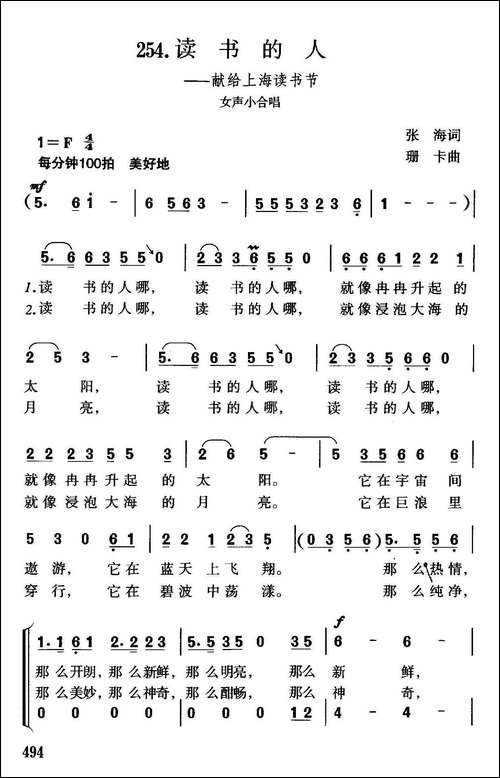 254.读 书 的 人
——献给上海读书节
女声小合唱
1=F 4/4
张 海词
每分钟100拍 美好地
珊 卡曲
mf
(5. 6 i - | 6 5 6 3 - | 5 5 5 3 2 3 6 | 1 - - -)|
5. 6 6 3 5 5 0 | 2 3 3 6 5 5 0 | 6 6 6 1 2 2 1 |
1.读 书的人哪, 读 书的人哪, 就像冉冉升起的
2.读 书的人哪, 读 书的人哪, 就像浸泡大海的
2 5 3 - | 5. 6 6 3 5 5 0 | 2 3 3 5 6 6 0 |
太 阳, 读 书的人哪, 读 书的人哪,
月 亮, 读 书的人哪, 读 书的人哪,
2 2 2 3 5 5 3 | 2 6 5 - | 5 3 5 6 6 |
就像冉冉升起的 太 阳。 它在宇宙间
就像浸泡大海的 月 亮。 它在巨浪里
5 3 0 6 1 | 2 2 1 2 3 5 | (0 3 5 6) 5. 5 5 6 |
遨游, 它在 蓝天上飞 翔。 那么热情,
穿行, 它在 碧波中荡 漾。 那么纯净,
f
1. 1 6 1 2. 2 2 3 | 5. 5 3 5 0 3 5 | 6 - 6 - |
那么开朗,那么新鲜,那么明亮, 那么 新 鲜,
那么美妙,那么神奇,那么酣畅, 那么 神 奇,
0 0 0 0 | 0 0 0 1 2 | 4 - 4 - |
494